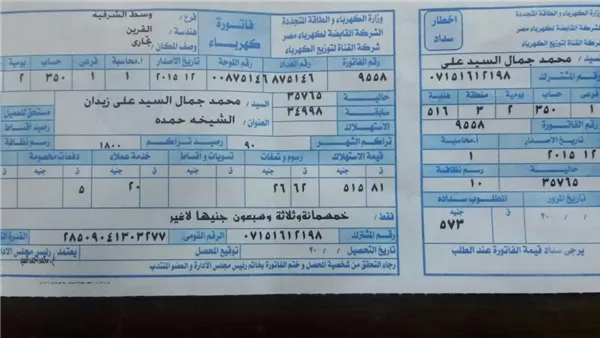 اخطار سداد
وزارة الكهرباء و الطاقة المتجددة
الشركة القابضة لكهرباء مصر
شركة القناة لتوزيع الكهرباء
السيد / محمد جمال السيد على
رقم المشترك ٠٧١٥١٦١٢١٩٨
فرعى حساب يومية منطقة هندسة
١ ٣٥٠ ٢ ٣ ٥١٦
رقم الفاتورة ٩٥٥٨
تاريخ الاصدار أ.محاسبة
١٢ ٢٠١٥ ١
حالية رسم نظافة
٣٥٧٦٥ ١٠
تاريخ المرور المطلوب سداده
/ / ٢٠ جنيه
٥٧٣
يرجى سداد قيمة الفاتورة عند الطلب
وزارة الكهرباء و الطاقة المتجددة
الشركة القابضة لكهرباء مصر
شركة القناة لتوزيع الكهرباء
فاتورة كهرباء
فرع / وسط الشرقيه
هندسة / القرين
وصف المكان / تجارى
رقم الفاتورة رقم العداد رقم اللوحة تاريخ الاصدار أ.محاسبة فرعى حساب يومية
٩٥٥٨ ٨٧٥١٤٦ ٠٠٨٧٥١٤٦ ١٢ ٢٠١٥ ١ ١ ٣٥٠ ٢
حالية ٣٥٧٦٥
سابقة ٣٤٩٩٨
الاستهلاك
السيد / محمد جمال السيد على زيدان
العنوان / الشيخه حمده
مستحق للعميل
رصيد أقساط
تراكم الشهر ٩٠ رصيد تراكم ١٨٠٠ رسم نظافة
قيمة الاستهلاك رسوم و تمغات تسويات و أقساط خدمة عملاء دفعات مخصومة
ق جنيه ق جنيه ق جنيه ق جنيه ق جنيه
٨١ ٥١٥ ٦٢ ٢٦ ٢٠ ٥
فقط / خمسمائة وثلاثة وسبعون جنيها لاغير
رقم المشترك ٠٧١٥١٦١٢١٩٨ الرقم القومى ٢٨٥٠٩٠٤١٣٠٣٢٧٧
تاريخ التحصيل / / ٢٠ توقيع المحصل يعتمد
رجاء التحقق من شخصية المحصل و ختم الفاتورة بخاتم رئيس مجلس الادارة و العضو المنتدب